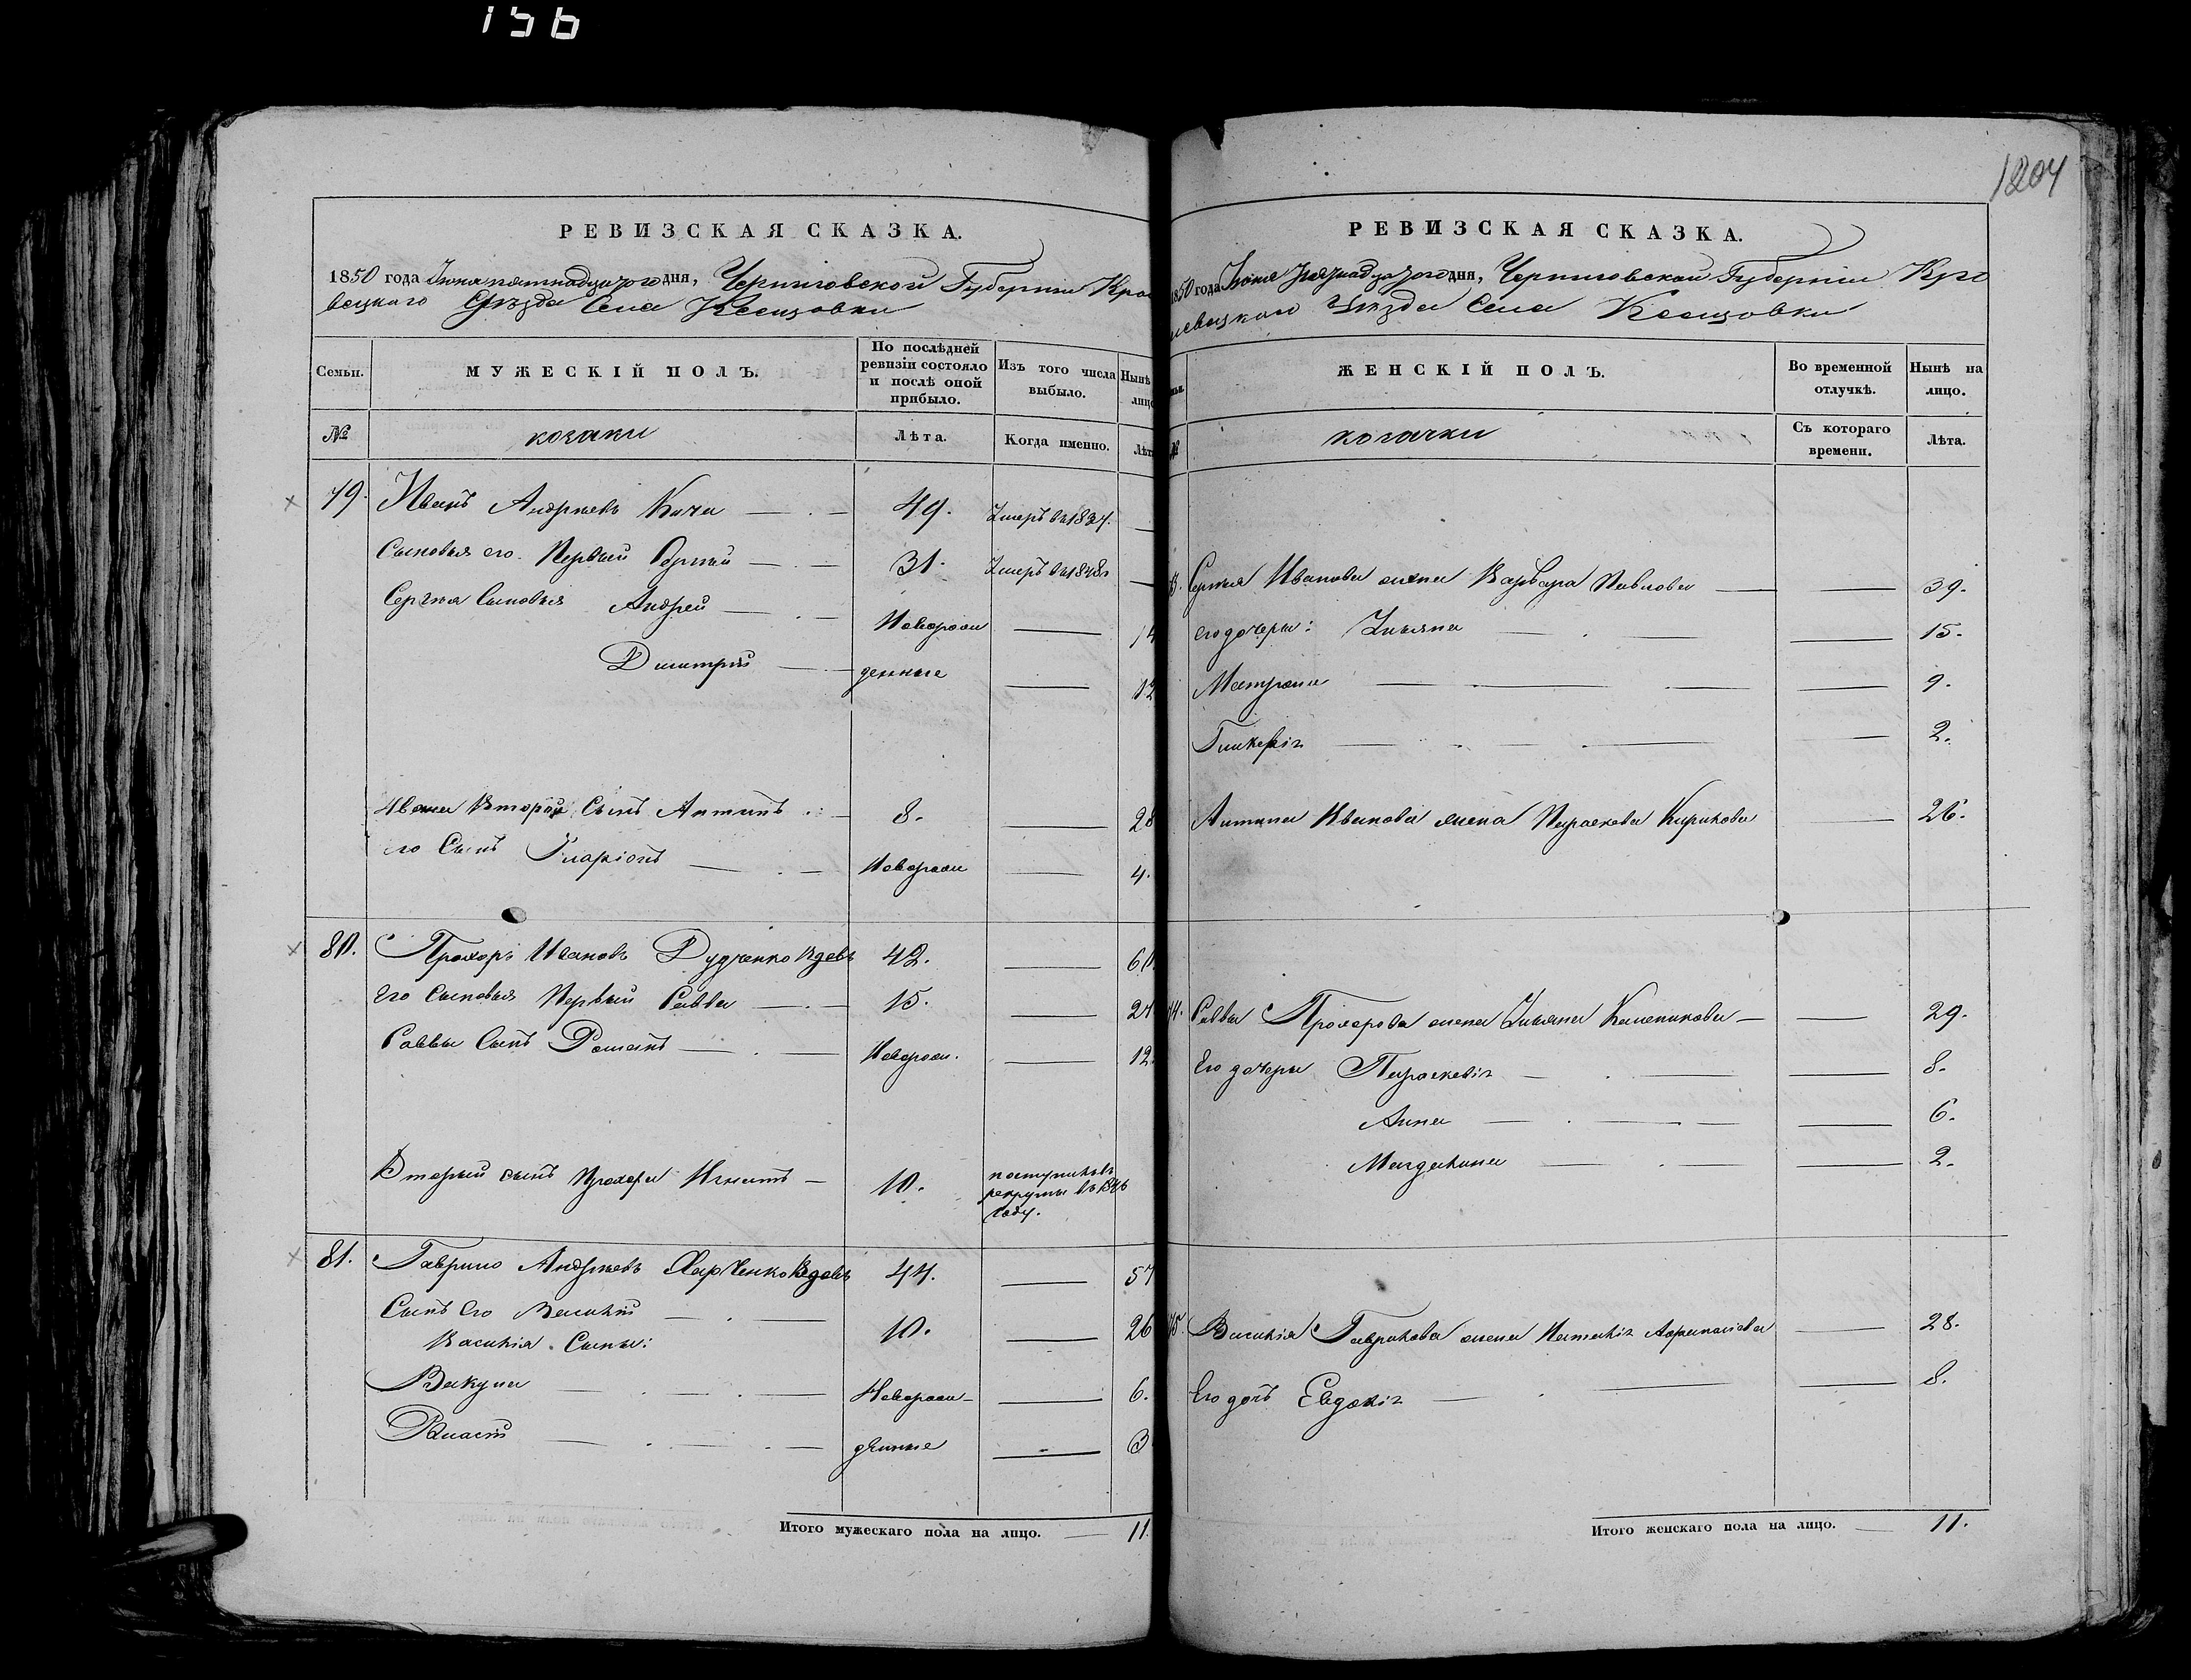 156
1204
РЕВИЗСКАЯ СКАЗКА.
1850 года Іюня пятнадцатого дня, Черниговской Губерніи Кро
вецкаго Уѣзда Села
Семьи.
МУЖЕСКІЙ ПОЛЪ.
По послѣдней ревизіи состояло и послѣ оной прибыло.
Изъ того числа выбыло.
Нынѣ лицо
№
козаки
Лѣта.
Когда именно.
Лѣт
79. Иванъ Андреевъ 49. Умеръ въ 1834.
Сыновья его Первый Сергѣй 31. Умеръ въ 1848
Сергѣя Сыновья Андрей Новорож 14
Димитрій денные 12
Ивана Второй Сынъ Антипъ 8. 28
его Сынъ ИларіонъНоворож 4.
80. Прохоръ Ивановъ Дудченко Вдовъ 42. 60
Его Сыновья Первый Савва 15.
Саввы Сынъ Романъ Новорож. 12.
Вторый сынъ Прохора Игнатъ 10. поступилъ въ
рекруты въ
году.
81. Гаврило Андреевъ Харченко Вдовъ 44. 57
Сынъ Его Василій 10. 26
Василія Сыны:
Вакула Новорож- 6.
Власій денные 3
Итого мужескаго пола на лицо. 11.
РЕВИЗСКАЯ СКАЗКА.
1850 года Іюня Пятнадцатого дня, Черниговской Губерніи Кро
левецкаго Уѣзда Села
ЖЕНСКІЙ ПОЛЪ.
Во временной отлучкѣ.
Нынѣ на лицо.
№
козачки
Съ котораго времени.
Лѣта.
Сергѣя Иванова жена Варвара Павлова 39.
его дочери: Ульяна 15.
Матрона 9.
Гликерія 2.
Антипа Иванова жена Параскева Кирилова 26.
Савви Прохорова жена Ульяна 29.
Его дочери Параскевія 8.
Анна 6.
Магдалина 2.
Василія Гаврилова жена Наталія 28.
Его дочь Евдокія 8.
Итого женскаго пола на лицо. 11.